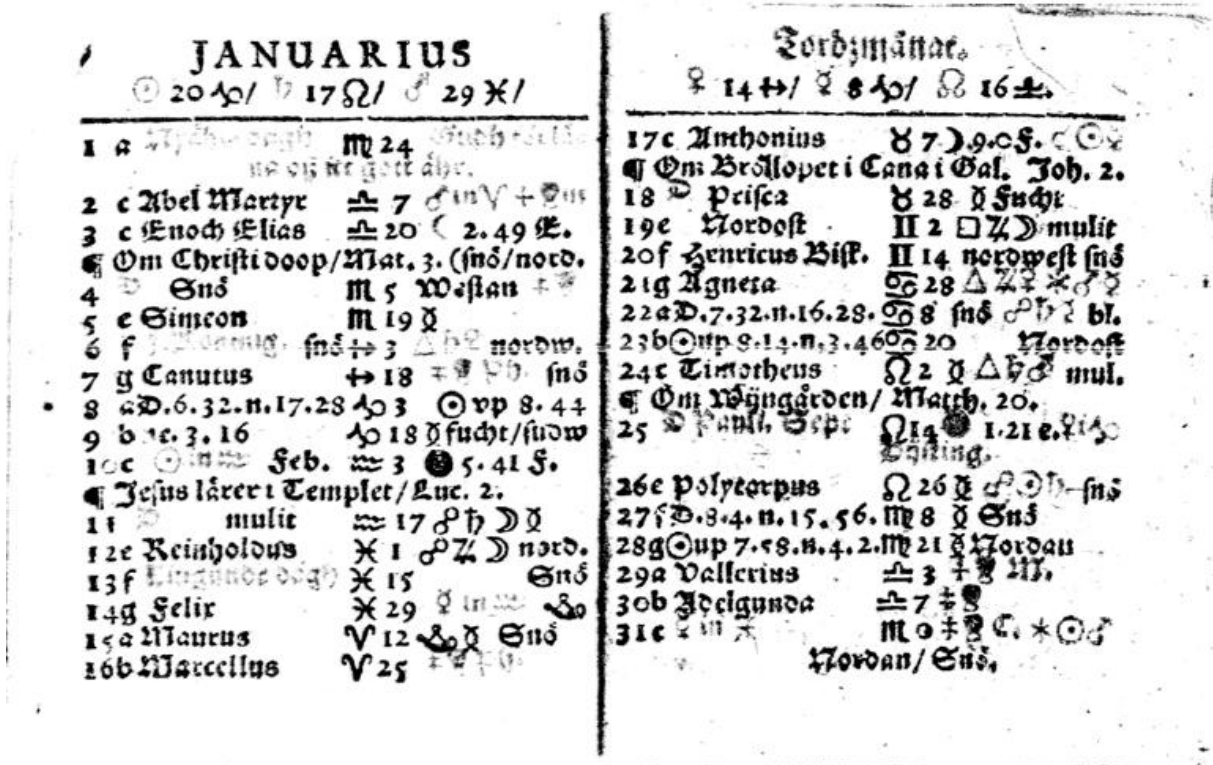 JANUARIUS
☉ 20 ♑/ ♄ 17 ♌/ ♂ 29 ♓/
1 a ♍ 24
2 c Abel Martyr ♎ 7 ♂ in ♈
3 c Enoch Elias ♎ 20 ☾ 2.49 E.
¶ Om Christi doop/ Mat. 3. (snö/nord.
4 D Snö ♏ 5 Westan
5 e Simeon ♏ 19 ☿
6 f snö ♐ 3 △ ♄ nordw.
7 g Canutus ♐ 18 snö
8 a D. 6. 32. n. 17. 28 ♑ 3 ☉ vp 8. 44
9 b ne. 3. 16 ♑ 18 ☿ fucht/sudw
10 c ☉ in ♒ Feb. ♒ 3 ● 5. 41 F.
¶ Jesus lärer i Templet/ Luc. 2.
11 D mulit ♒ 17 ☍ ♄ ☽ ☿
12 e Reinholdus ♓ 1 ☍ ♃ ☽ nord.
13 f ♓ 15 Snö
14 g Felix ♓ 29 ☿ in ♒
15 a Maurus ♈ 12 ☿ Snö
16 b Marcellus ♈ 25
Tordzmånat.
♀ 14 ♐/ ☿ 8 ♑/ ☊ 16 ♎.
17 c Anthonius ♉ 7 ☽. 9. 0 F.
¶ Om Bröllopet i Cana i Gal. Joh. 2.
18 D Prisca ♉ 28 ☿ Fucht
19 e Nordost ♊ 2 □ ♃ ☽ mulit
20 f Henricus Bisk. ♊ 14 nordwest snö
21 g Agneta ♋ 28 △ ♃ ♀ ⚹ ♂ ☿
22 a D. 7. 32. n. 16. 28. ♋ 8 snö ☍ ♄ ☿ bl.
23 b ☉ up 8. 14. n. 3. 46 ♋ 20 Nordost
24 c Timotheus ♌ 2 ☿ △ ♄ ♂ mul.
¶ Om Wijngården/ Matth. 20.
25 D Pauli. ♌ 14 ● 1. 21 e. ♀ i ♑
26 e Polycarpus ♌ 26 ☿ ☍ ☉ ♄ snö
27 f D. 8. 4. n. 15. 56. ♍ 8 ☿ Snö
28 g ☉ up 7. 58. n. 4. 2. ♍ 21 ☿ Nordan
29 a Vallerius ♎ 3 M.
30 b Adelgunda ♎ 7
31 c ♀ in ♓ ♏ 0 ⚹ ☉ ♂
Nordan/ Snö.